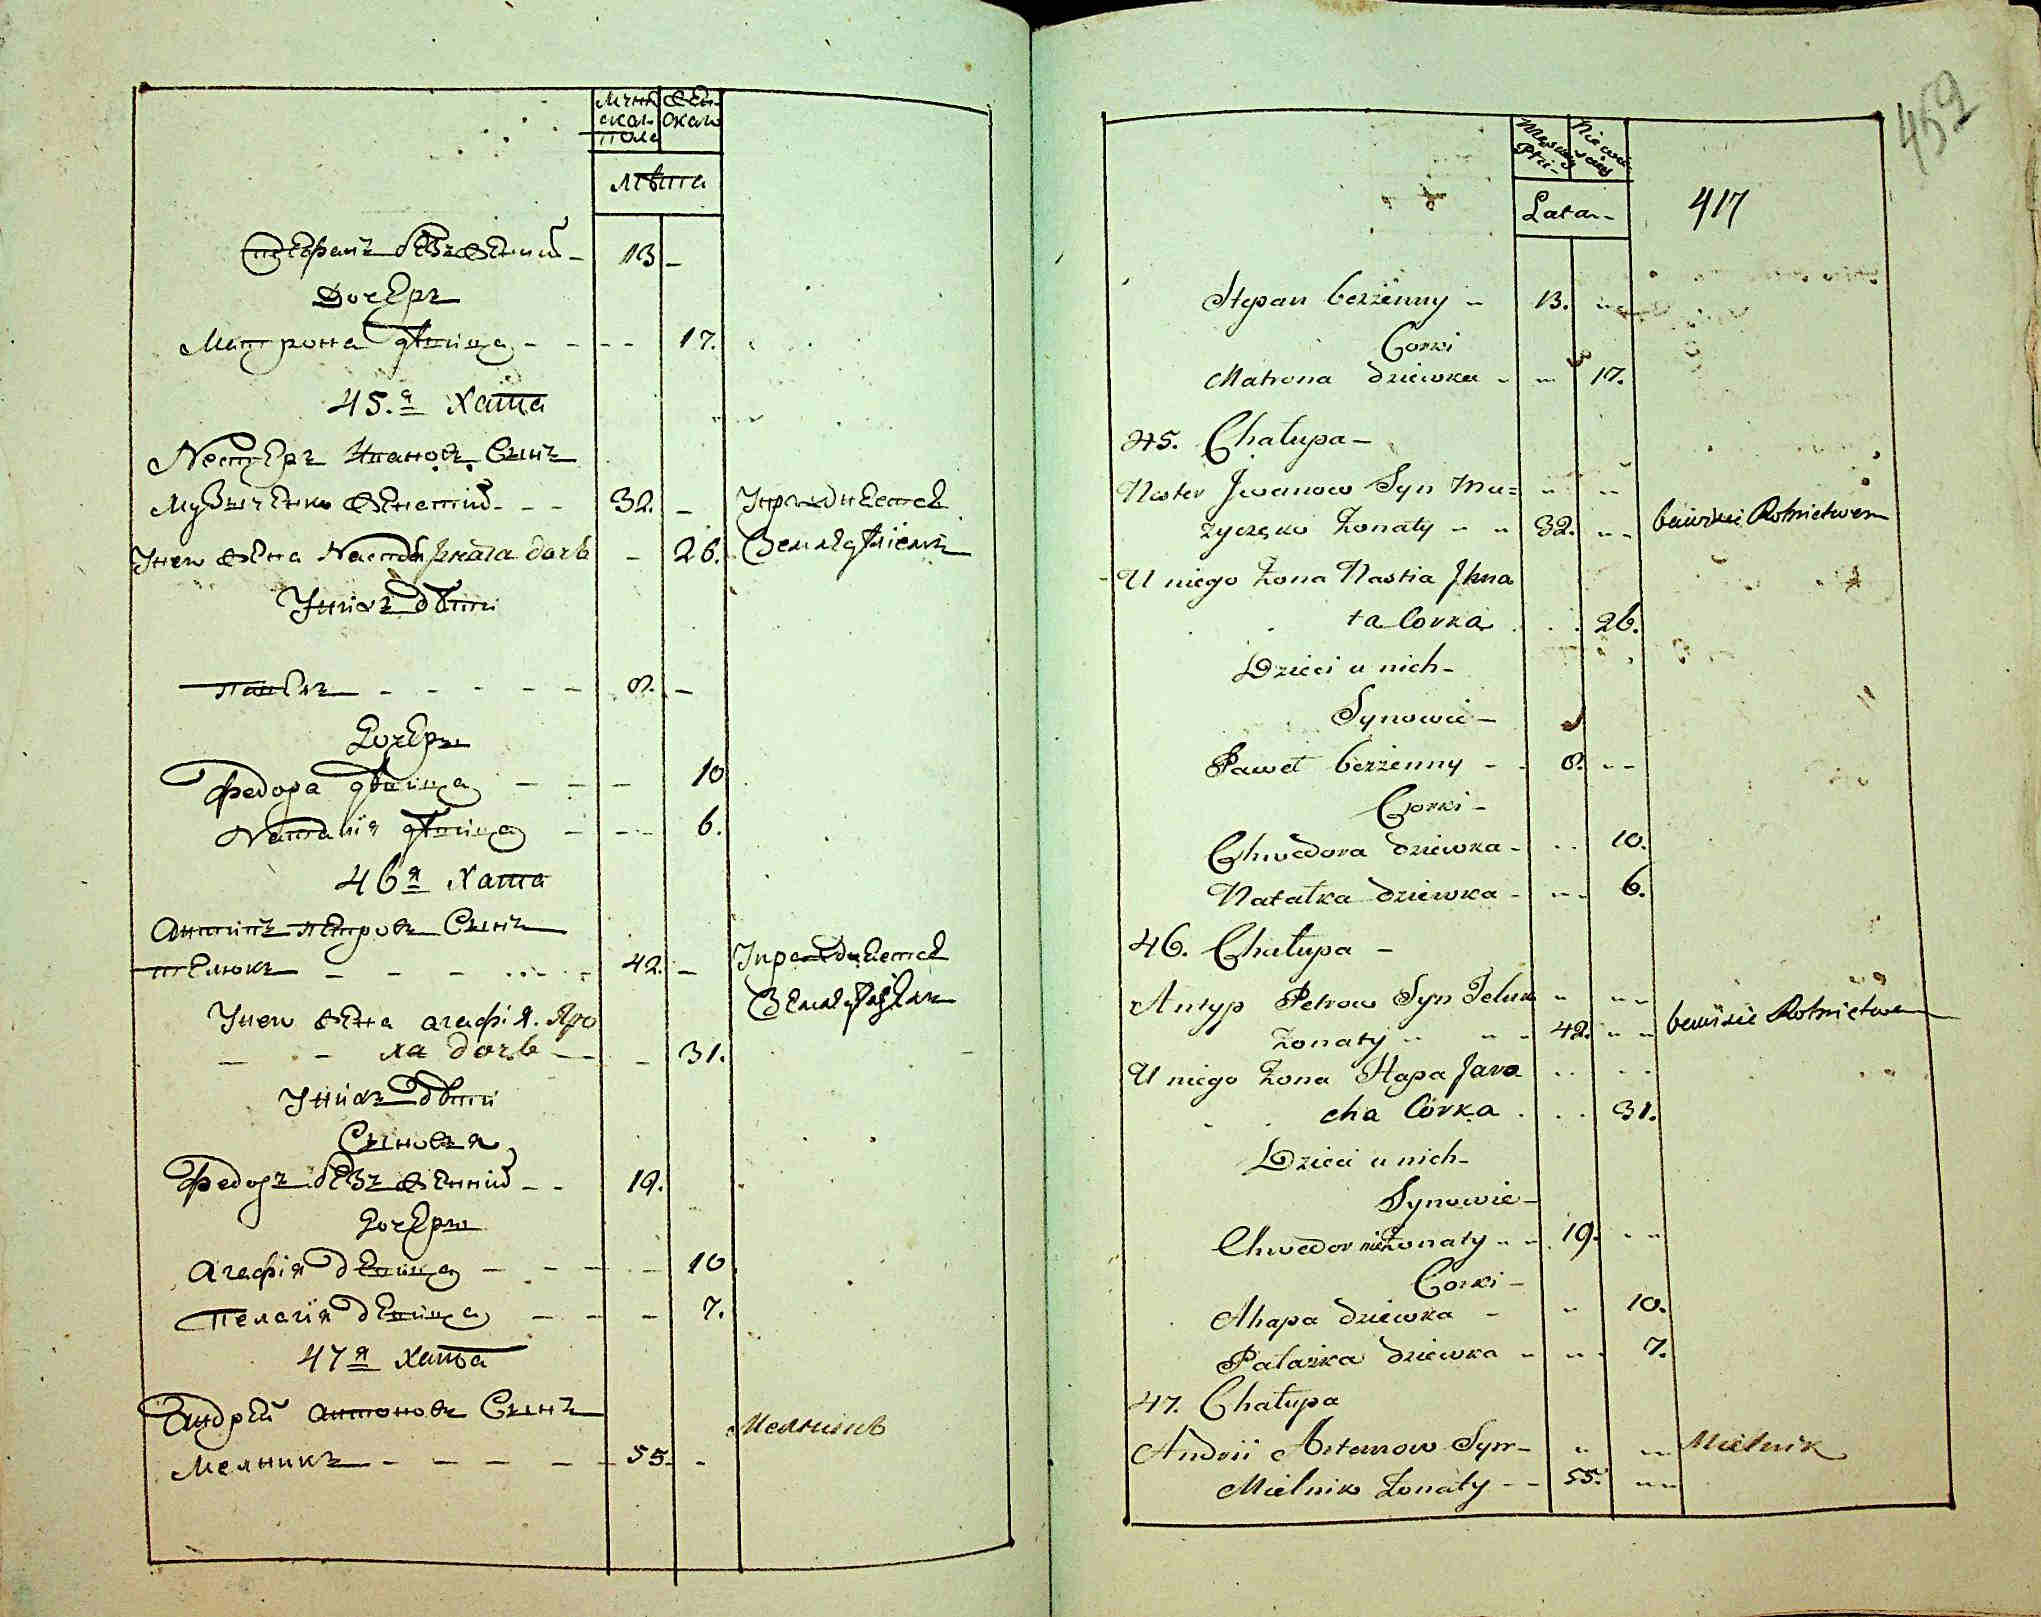 Мужескаго Пола
Женскаго
Лѣта
Стефанъ безженный 13
Дочерь
Матрона дѣвица 17.
45.я Хата
Нестеръ Ивановъ Сынъ
Музыченко женатый 32.
Упражняется
Унего жена Настя Игната дочь 26.
Земледѣліемъ
Унихъ дѣти
павелъ 8.
Дочеры
Федора дѣвица 10
Наталія дѣвица 6.
46я Хата
Антипъ петровъ Сынъ
телюкъ 42.
Упражняется
Земледѣліемъ
Унего жена агафія Яро
ха дочь 31.
Унихъ дѣти
Сыновья
Федоръ безженный 19.
Дочеры
Агафія дѣвица 10
Пелагія дѣвица 7.
47я Хата
Андрей антоновъ Сынъ
Мелникъ 55.
Мелникъ
459
417
Lata
Stepan bezżenny 13.
Corki
Matrona dziewka 17.
45. Chałupa
Nester Jwanow Syn Mu=
zyczęko Żonaty 32.
bawi sie Rolnictwem
U niego Żona Nastia Jhna
ta Corka 26.
Dzieci u nich
Synowie
Paweł bezżenny 8.
Corki
Chwedora dziewka 10.
Natałka dziewka 6.
46. Chałupa
Antyp Petrow Syn Teluk
Żonaty 42.
bawi sie Rolnictwem
U niego Żona Hapa Jaro
cha Córka 31.
Dzieci u nich
Synowie
Chwedor nieżonaty 19.
Corki
Ahapa dziewka 10.
Pałażka dziewka 7.
47. Chałupa
Andrii Antonow Syn
Mielnik Żonaty 55.
Mielnik